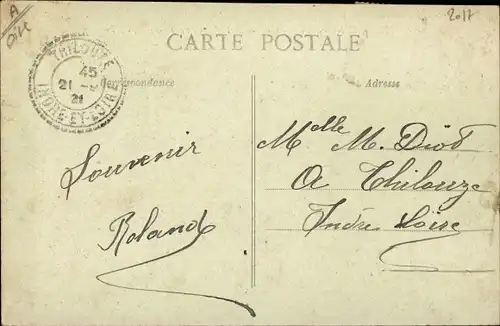 A
Oise
2017
CARTE POSTALE
THILOUZE
45
21
21
INDRE-ET-LOIRE
Correspondance
Adresse
Souvenir
Roland
Melle M. Diot
A Thilouze
Indre Loire